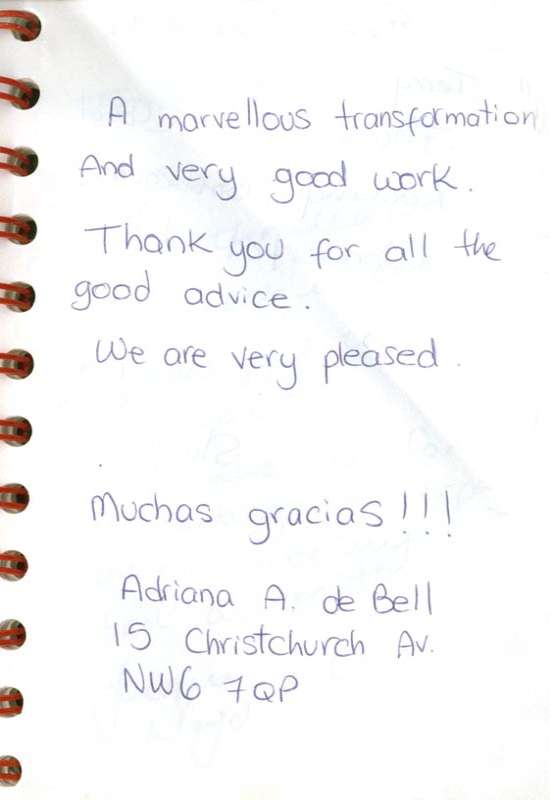 A marvellous transformation
And very good work.
Thank you for all the
good advice.
We are very pleased.
Muchas gracias!!!
Adriana A. de Bell
15 Christchurch Av.
NW6 7QP